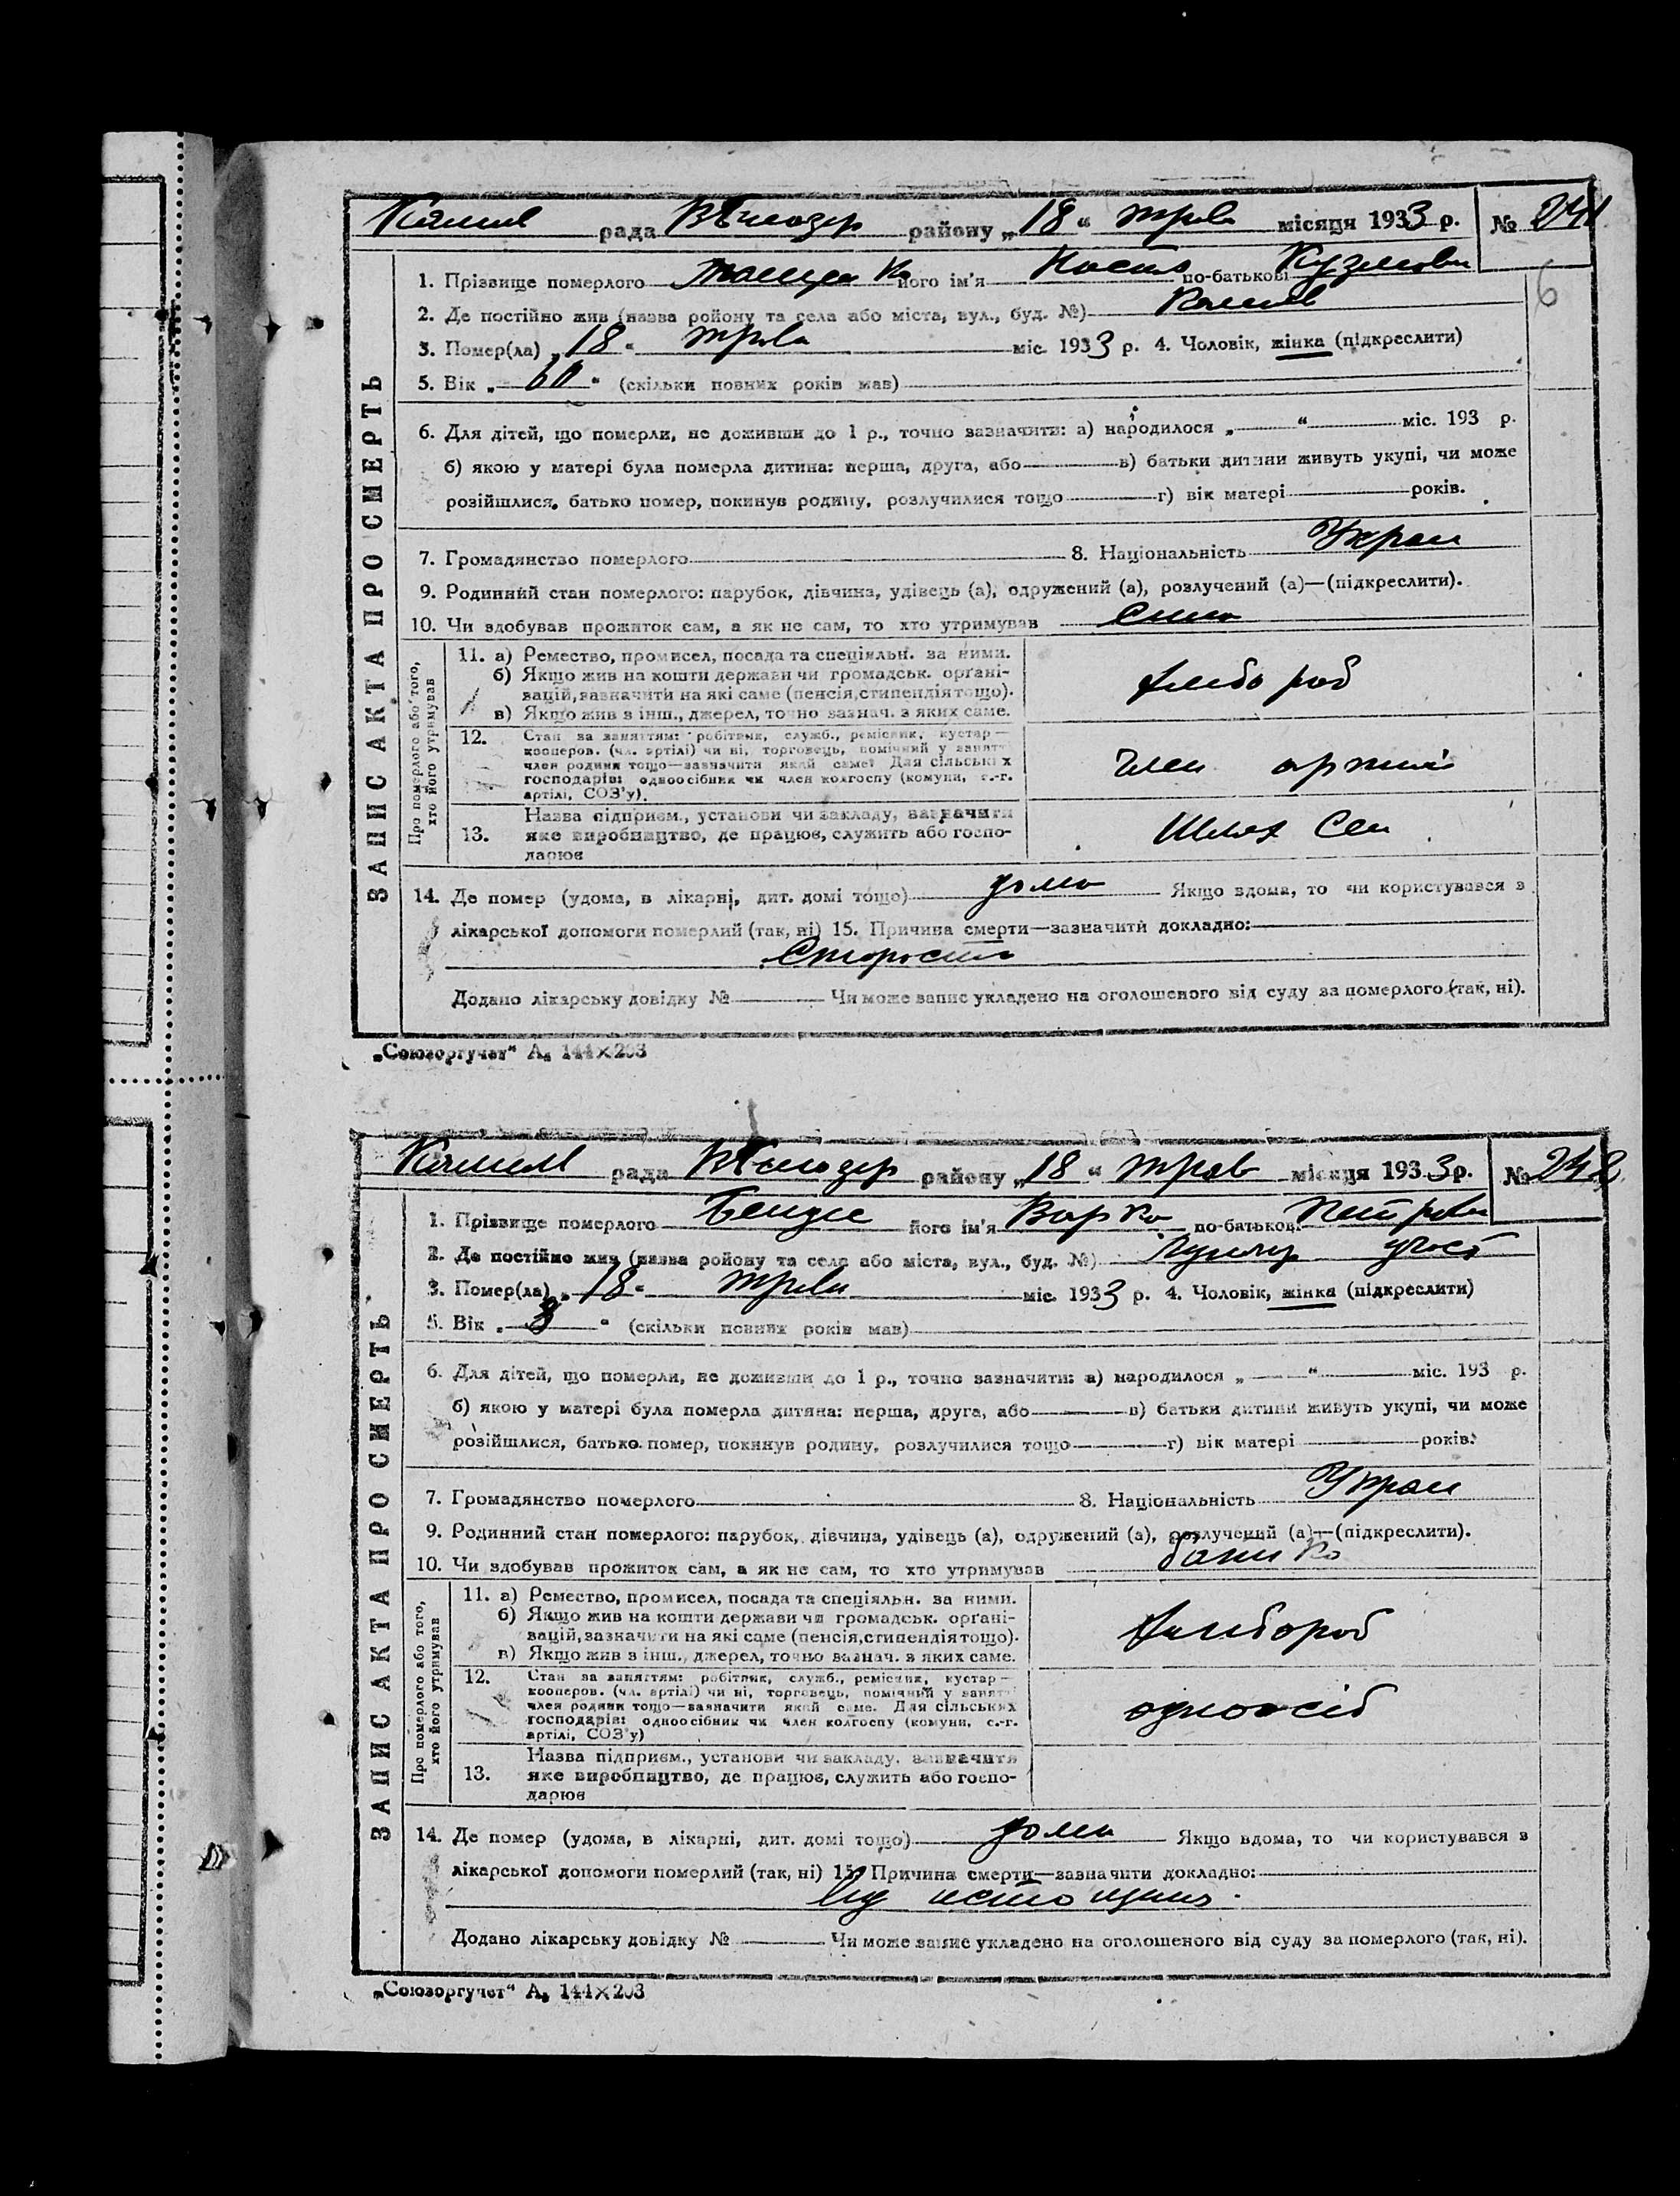 рада району „18“ трав місяця 1933 р. № 241
1. Прізвище померлого його ім'я Кость по-батькові Кузмов
2. Де постійно жив (назва ройону та села або міста, вул., буд. №)
3. Помер(ла) „18“ трав міс. 1933 р. 4. Чоловік, жінка (підкреслити)
5. Вік „60“ (скільки повних років мав)
6. Для дітей, що померли, не доживши до 1 р., точно зазначити: а) народилося „ “ міс. 193 р.
б) якою у матері була померла дитина: перша, друга, або в) батьки дитини живуть укупі, чи може
розійшлися, батько помер, покинув родину, розлучилися тощо г) вік матері років.
7. Громадянство померлого 8. Національність Украї
9. Родинний стан померлого: парубок, дівчина, удівець (а), одружений (а), розлучений (а)—(підкреслити).
10. Чи здобував прожиток сам, а як не сам, то хто утримував
ЗАПИС АКТА ПРО СМЕРТЬ
Про померлого або того, хто його утримував
11. а) Ремество, промисел, посада та спеціяльн. за ними.
б) Якщо жив на кошти держави чи громадськ. орґані-
зацій, зазначити на які саме (пенсія, стипендія тощо).
в) Якщо жив з інш., джерел, точно зазнач. з яких саме.
хлібороб
12. Стан за заняттям: робітник, служб., ремісник, кустар—
кооперов. (чл. артілі) чи ні, торговець, помічний у занятті
член родини тощо—зазначити який саме? Для сільських
господарів: одноосібник чи член колгоспу (комуни, с.-г.
артілі, СОЗ'у).
член артілі
13. Назва підприєм., установи чи закладу, зазначити
яке виробництво, де працює, служить або госпо-
дарює
Шлях Сел
14. Де помер (удома, в лікарні, дит. домі тощо) дома Якщо вдома, то чи користувався з
лікарської допомоги померлий (так, ні) 15. Причина смерти—зазначити докладно:
Старость
Додано лікарську довідку № Чи може запис укладено на оголошеного від суду за померлого (так, ні).
„Союзоргучет“ А₆ 144×203
рада району „18“ трав місяця 1933 р. № 242
1. Прізвище померлого його ім'я Варка по-батькові Петров
2. Де постійно жив (назва ройону та села або міста, вул., буд. №)
3. Помер(ла) „18“ трав міс. 1933 р. 4. Чоловік, жінка (підкреслити)
5. Вік „ “ (скільки повних років мав)
6. Для дітей, що померли, не доживши до 1 р., точно зазначити: а) народилося „ “ міс. 193 р.
б) якою у матері була померла дитина: перша, друга, або в) батьки дитини живуть укупі, чи може
розійшлися, батько помер, покинув родину, розлучилися тощо г) вік матері років.
7. Громадянство померлого 8. Національність Украї
9. Родинний стан померлого: парубок, дівчина, удівець (а), одружений (а), розлучений (а)—(підкреслити).
10. Чи здобував прожиток сам, а як не сам, то хто утримував батько
ЗАПИС АКТА ПРО СМЕРТЬ
Про померлого або того, хто його утримував
11. а) Ремество, промисел, посада та спеціяльн. за ними.
б) Якщо жив на кошти держави чи громадськ. орґані-
зацій, зазначити на які саме (пенсія, стипендія тощо).
в) Якщо жив з інш., джерел, точно зазнач. з яких саме.
хлібороб
12. Стан за заняттям: робітник, служб., ремісник, кустар—
кооперов. (чл. артілі) чи ні, торговець, помічний у занятті
член родини тощо—зазначити який саме. Для сільських
господарів: одноосібник чи член колгоспу (комуни, с.-г.
артілі, СОЗ'у)
одноосіб
13. Назва підприєм., установи чи закладу, зазначити
яке виробництво, де працює, служить або госпо-
дарює
14. Де помер (удома, в лікарні, дит. домі тощо) дома Якщо вдома, то чи користувався з
лікарської допомоги померлий (так, ні) 15. Причина смерти—зазначити докладно:
Від истощния
Додано лікарську довідку № Чи може запис укладено на оголошеного від суду за померлого (так, ні).
„Союзоргучет“ А₆ 144×203